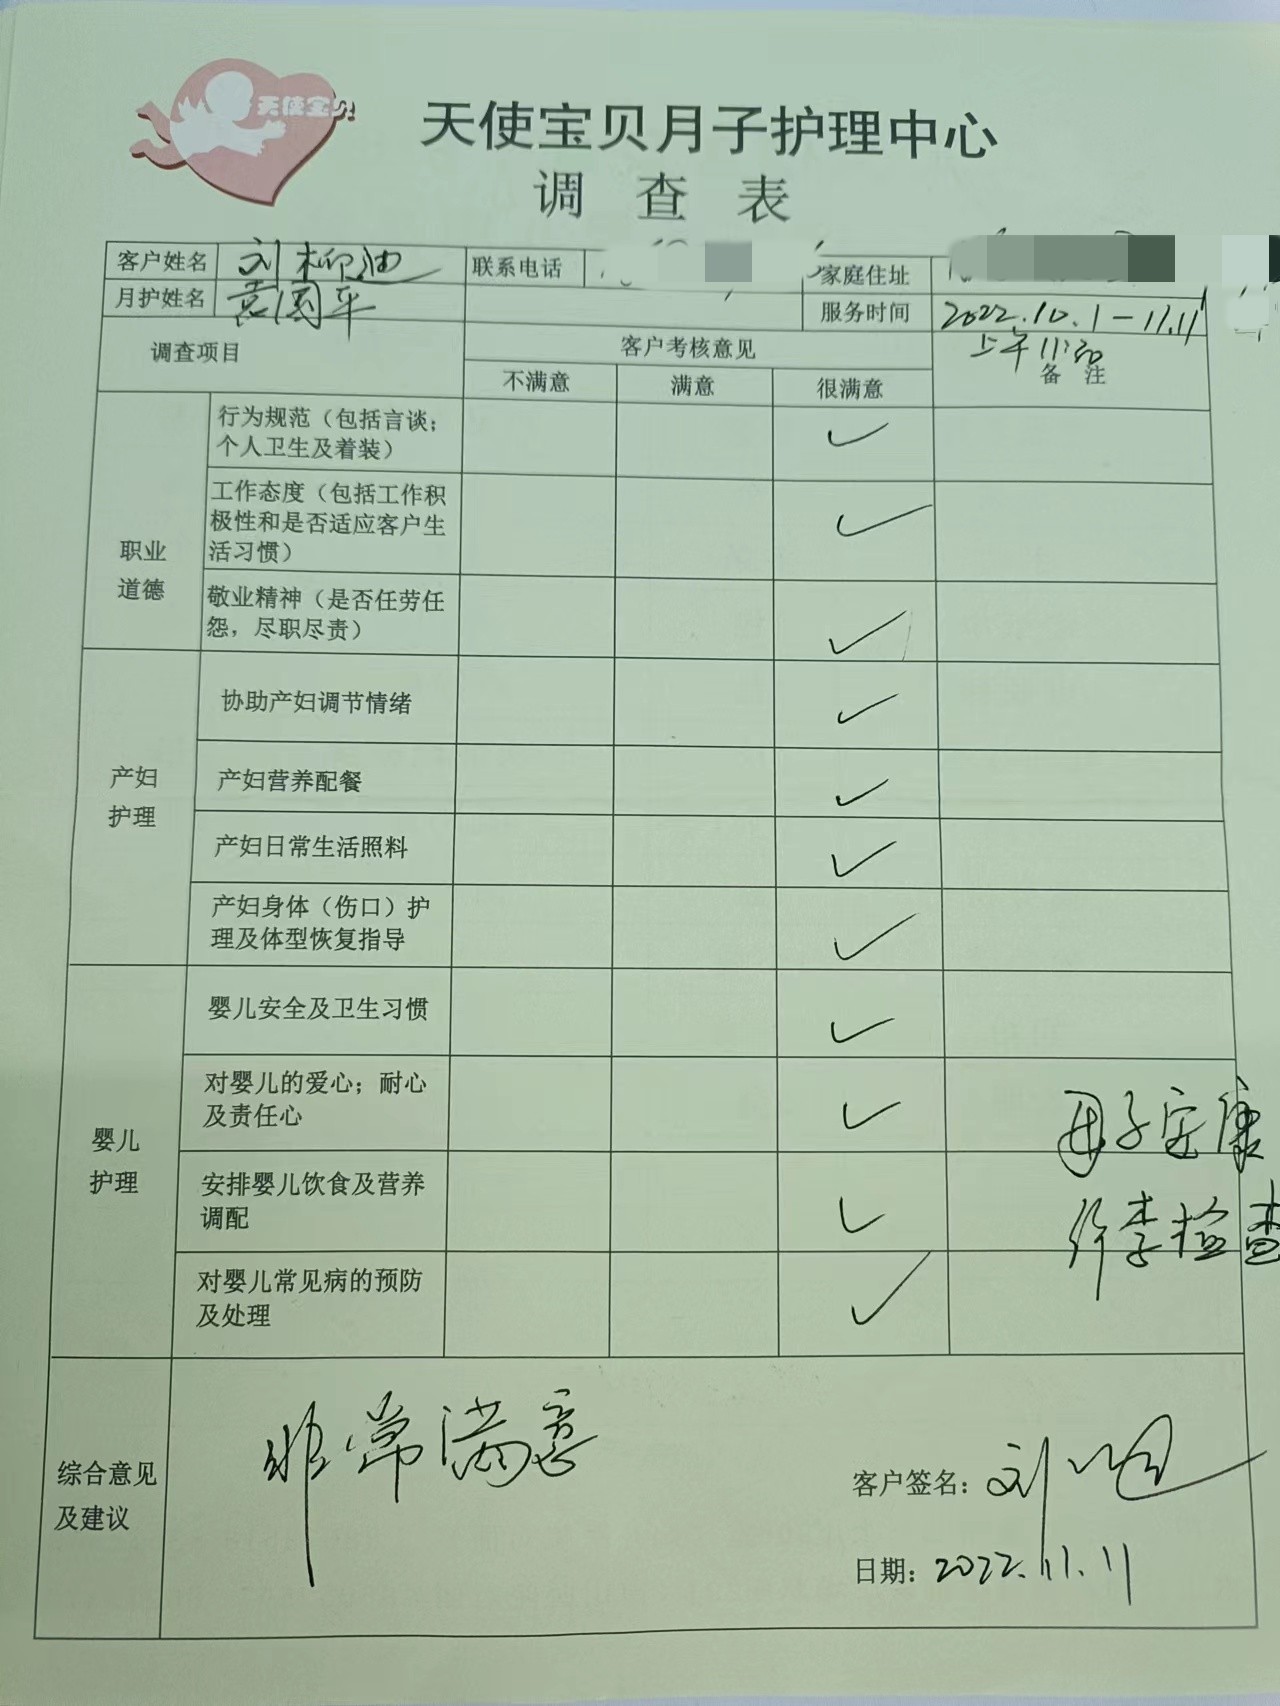 天使宝贝
天使宝贝月子护理中心
调查表
客户姓名 刘柳迪 联系电话 家庭住址
月护姓名 袁国平 服务时间 2022.10.1-11.11
上午11:30
调查项目 客户考核意见 备注
不满意 满意 很满意
职业
道德
行为规范（包括言谈；
个人卫生及着装）
工作态度（包括工作积
极性和是否适应客户生
活习惯）
敬业精神（是否任劳任
怨，尽职尽责）
产妇
护理
协助产妇调节情绪
产妇营养配餐
产妇日常生活照料
产妇身体（伤口）护
理及体型恢复指导
婴儿
护理
婴儿安全及卫生习惯
对婴儿的爱心；耐心
及责任心
安排婴儿饮食及营养
调配
对婴儿常见病的预防
及处理
母子安康
行李检查
综合意见
及建议
非常满意
客户签名：刘迪
日期：2022.11.11